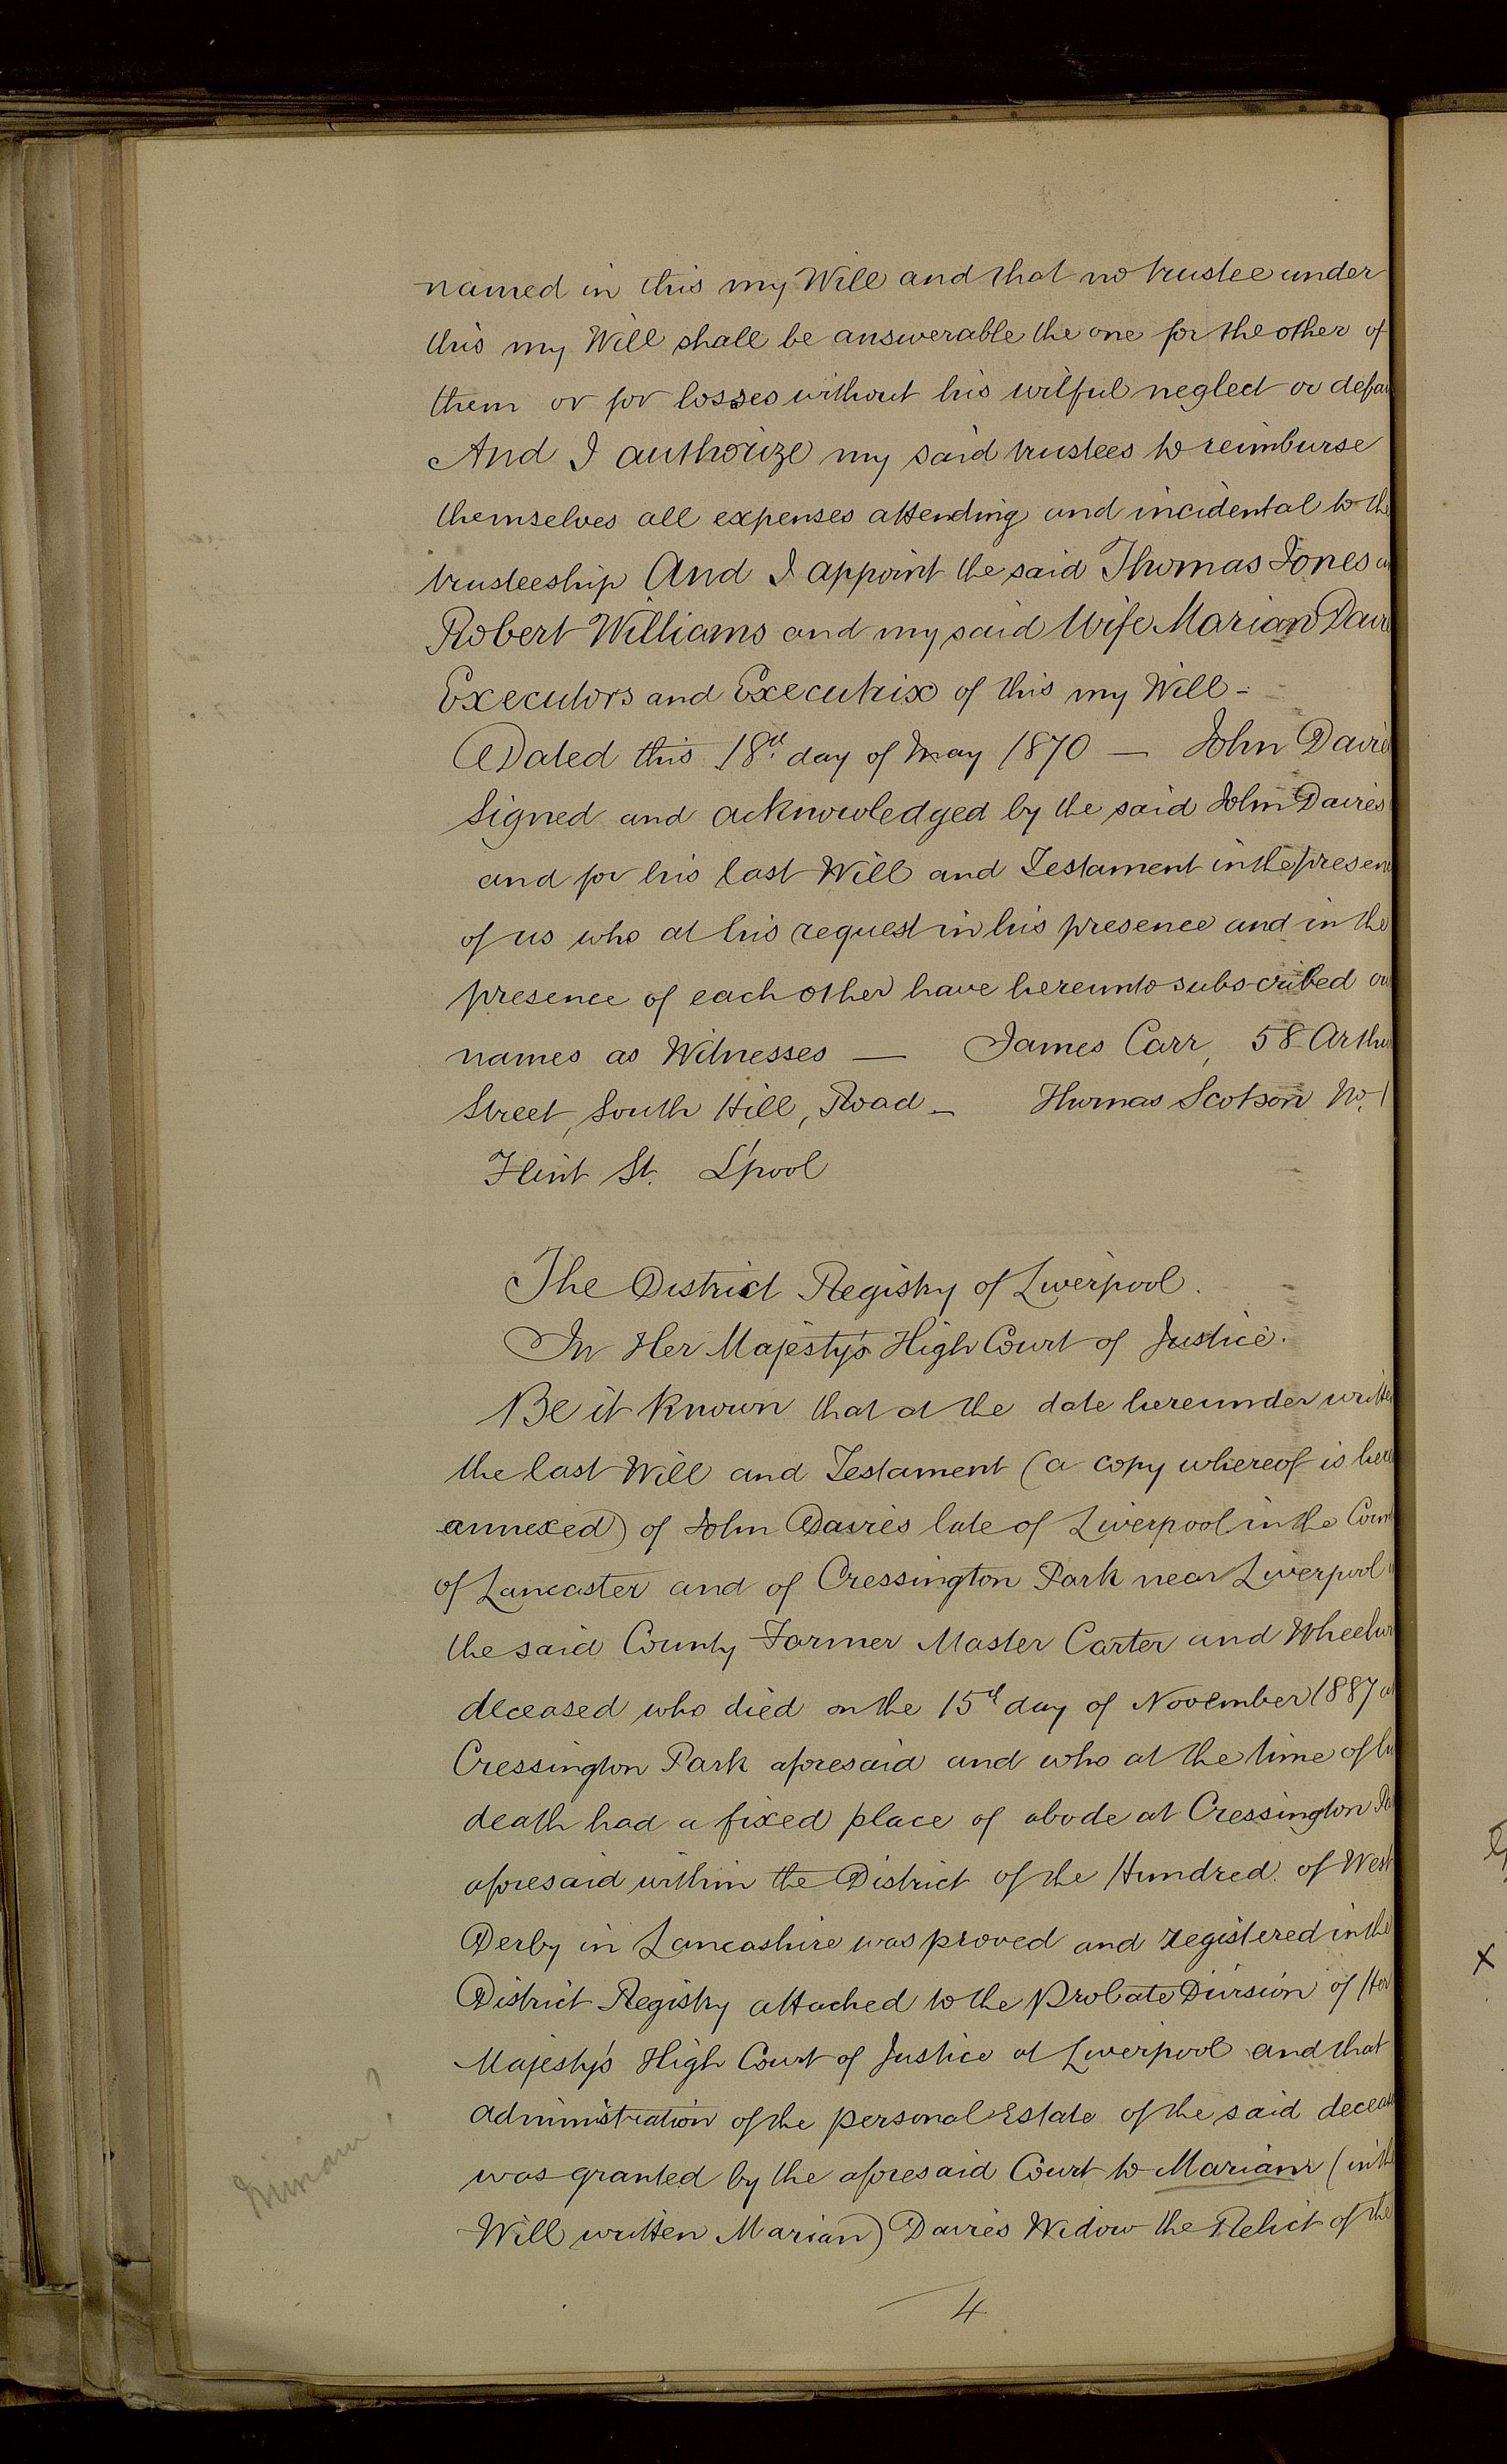 named in this my Will and that no trustee under
this my Will shall be answerable the one for the other of
them or for losses without his wilful neglect or defau
And I authorize my said trustees to reimburse
themselves all expenses attending and incidental to the
trusteeship And I appoint the said Thomas Jones a
Robert Williams and my said Wife Marian Davie
Executors and Executrix of this my Will -
Dated this 18th day of May 1870 — John Davie
Signed and acknowledged by the said John Davies
and for his last Will and Testament in the presen
of us who at his request in his presence and in the
presence of each other have hereunto subscribed ou
names as Witnesses — James Carr, 58 Arthu
Street, South Hill, Road - Thomas Scotson No. 1
Flint St. L'pool
The District Registry of Liverpool.
In Her Majesty's High Court of Justice.
Be it known that at the date hereunder writte
the last Will and Testament (a copy whereof is here
annexed) of John Davies late of Liverpool in the Coun
of Lancaster and of Cressington Park near Liverpool
the said County Farmer Master Carter and Wheelwr
deceased who died on the 15th day of November 1887 at
Cressington Park aforesaid and who at the time of hi
death had a fixed place of abode at Cressington Pa
aforesaid within the District of the Hundred of West
Derby in Lancashire was proved and registered in the
District Registry attached to the Probate Division of Her
Majesty's High Court of Justice at Liverpool and that
administration of the personal Estate of the said deceas
was granted by the aforesaid Court to Mariam (in the
Will written Marian) Davies Widow the Relict of the
4
x